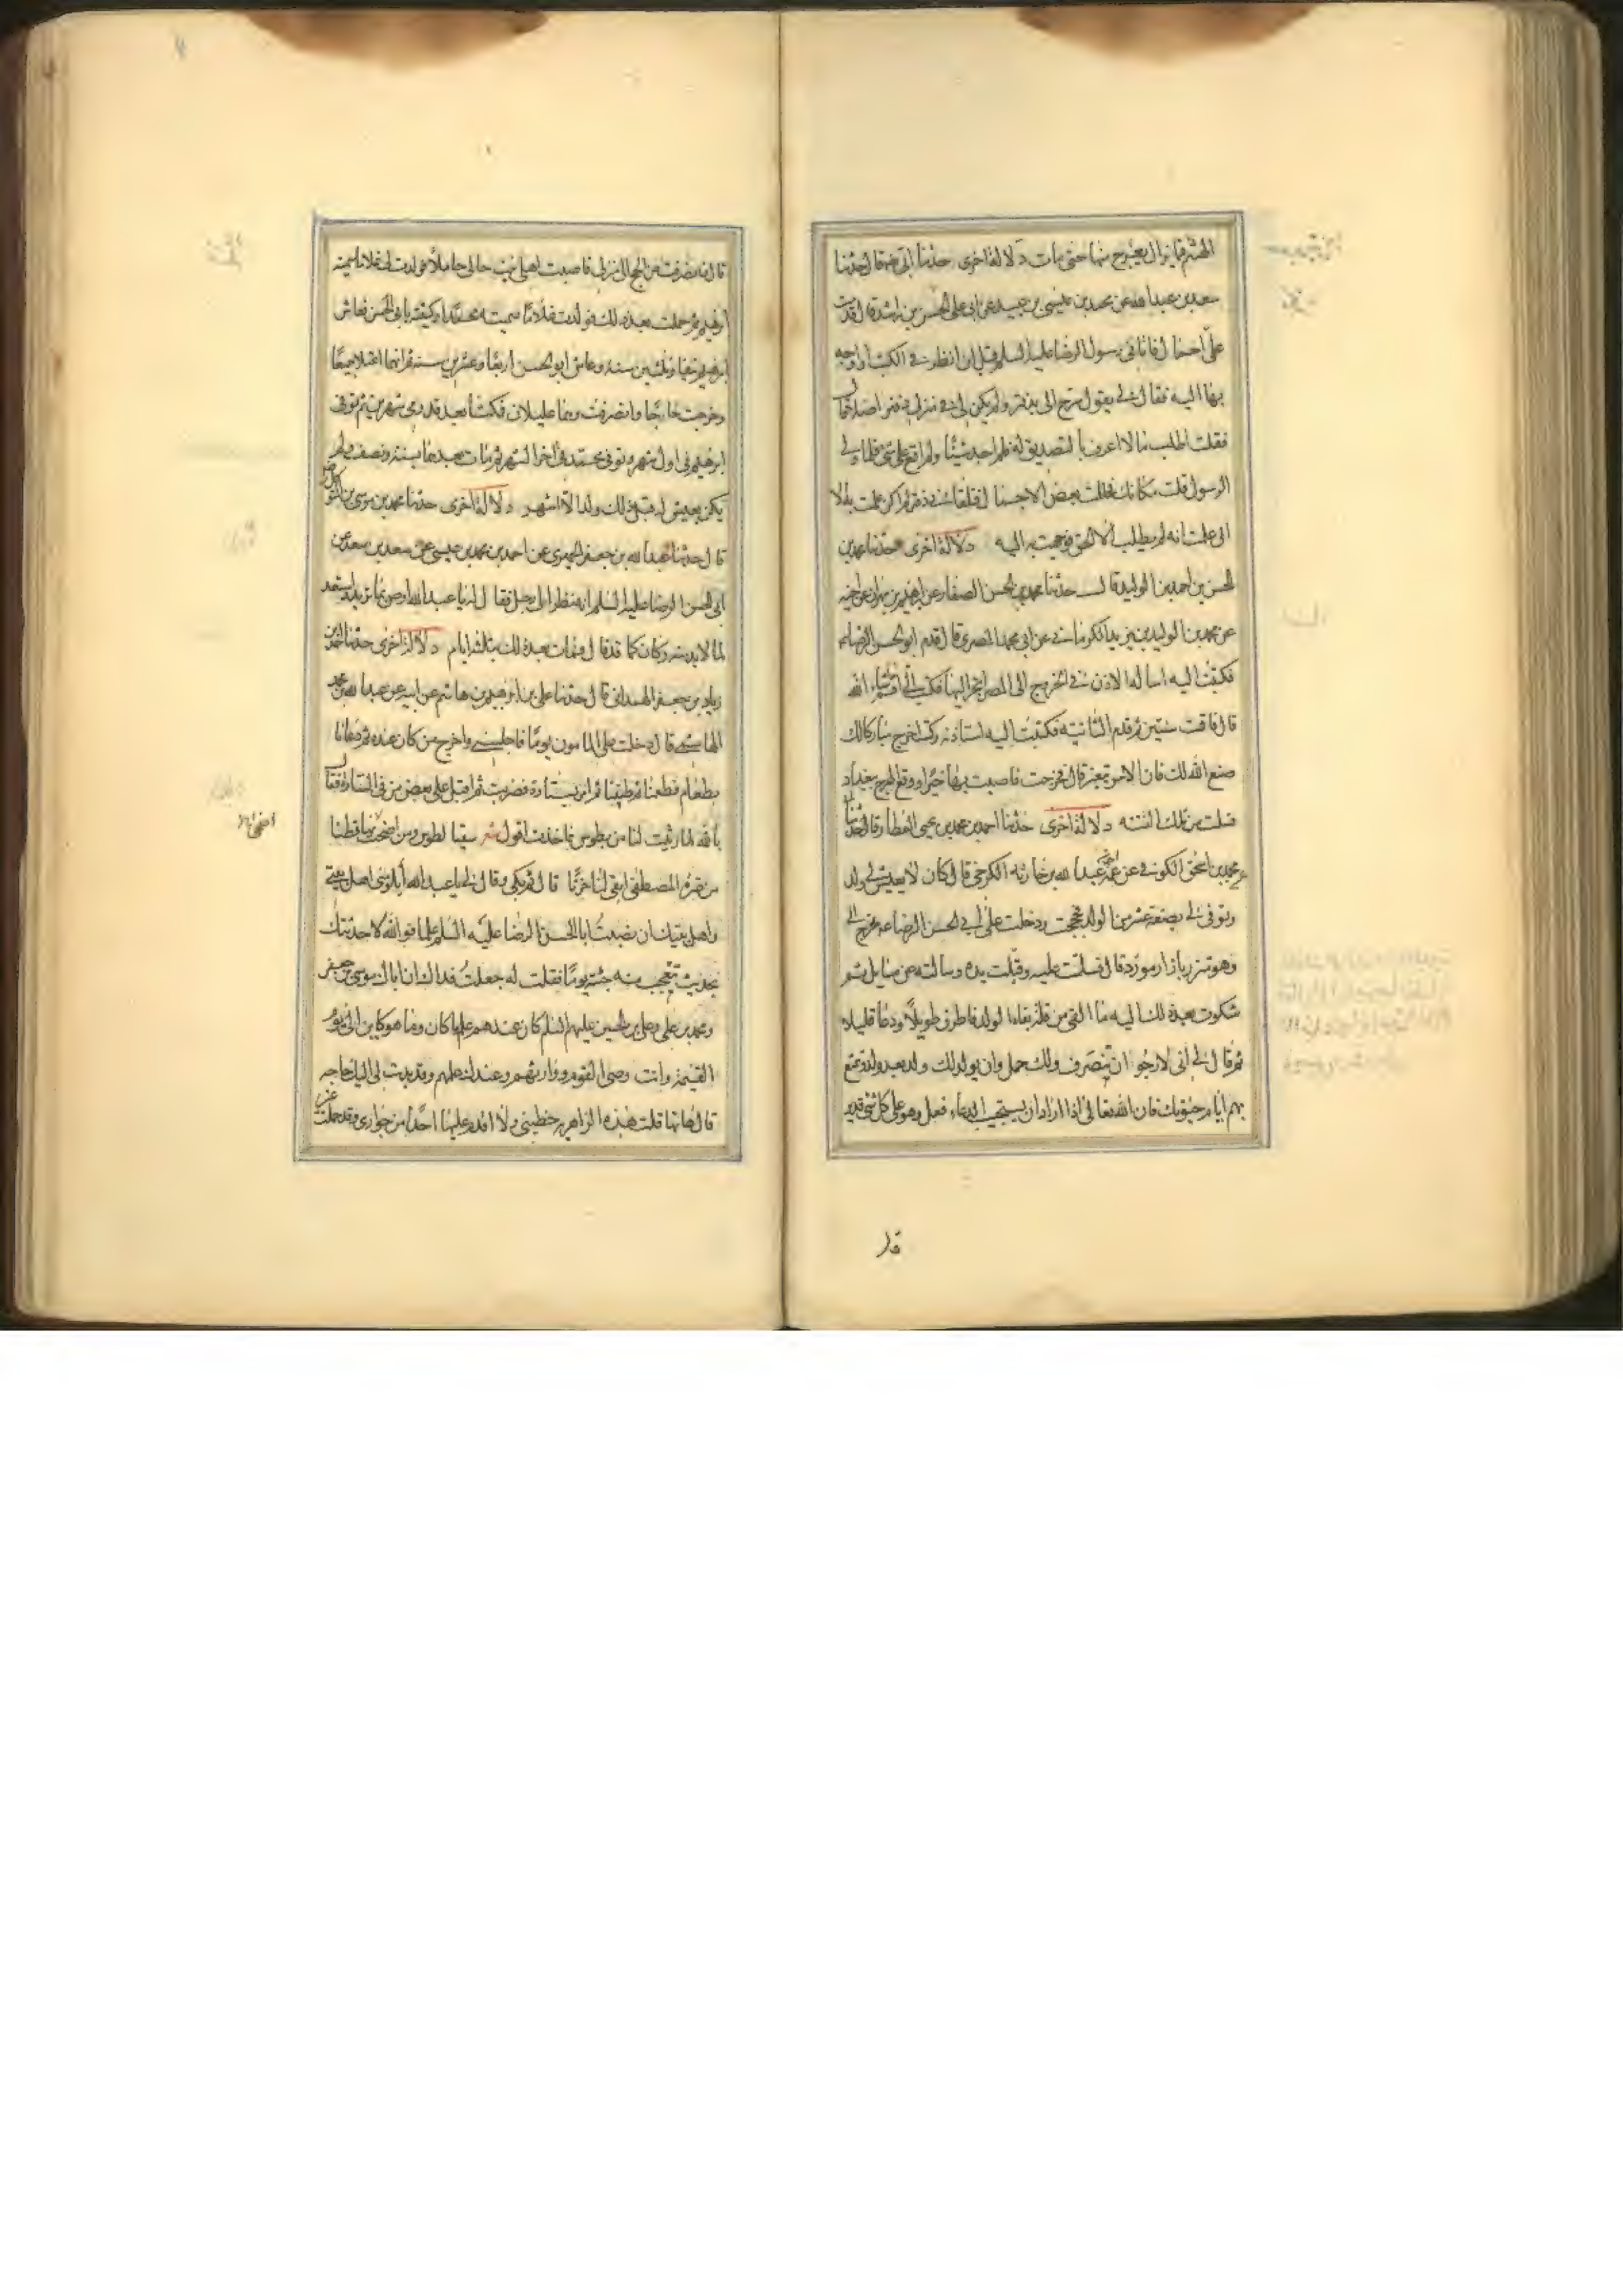 الهشم فما يزال يعرج منها حتى مات دلالة اخرى حدثنا ابي رضه قال حدثنا
سعد بن عبد الله عن محمد بن عيسى بن عبيد عن ابي على الحسن بن راشد قال قدمت
على احمال فاتانى رسول الرضا عليه السلم قبل ان انظر فى الكتب او اوجه
بها اليه فقال لى يقول سرح الى بدفتر ولم يكن لى فى منزلى دفتر اصلا قال
فقلت اطلب ما لا اعرف بالتصديق له فلم اجد شيئا ولم اقع على شئ فلما ولى
الرسول قلت مكانك فحللت بعض الاحمال فتلقانى دفتر لم اكن علمت به الا
انى علمت انه لم يطلب الا الحق فوجهت به اليه دلالة اخرى حدثنا محمد بن
الحسن بن احمد بن الوليد قال حدثنا محمد بن الحسن الصفار عن ابرهيم بن مهزيار عن اخيه
عن محمد بن الوليد بن يزيد الكرمانى عن ابى محمد المصرى قال قدم ابو الحسن الرضاء
فكتبت اليه اساله الاذن فى الخروج الى المصر اتجر اليها فكتب الى اقم ما شاء الله
قال فاقمت سنتين ثم قدم الثانية فكتبت اليه استاذنه فكتب اخرج مباركا لك
صنع الله لك فان الامر يتغير قال فخرجت فاصبت بها خيرا ووقع الهرج ببغداد
فسلمت من تلك الفتنه دلالة اخرى حدثنا احمد بن محمد بن يحيى العطار قال حدثنا ابى
عن محمد بن اسحق الكوفى عن عمه احمد بن عبد الله بن حارثه الكرخى قال كان لا يعيش لى ولد
وتوفى لى بضعة عشر من الولد فحججت ودخلت على ابى الحسن الرضا عه فخرج الى
وهو متزر بازار مورد قال فسلمت عليه وقبلت يده وسالته عن مسايل ثم
شكوت بعد ذلك اليه ما القى من قلة بقاء الولد فاطرق طويلا ودعا قليلا
ثم قال لى انى لارجوا ان تنصرف ولك حمل وان يولد لك ولد بعد ولد وتمتع
بهم ايام حيوتك فان الله تعالى اذا اراد ان يستجيب الدعاء فعل وهو على كل شئ قدير
قال
قال فانصرفت من الحج الى منزلى فاصبت اهلى ابنت خالى حاملا فولدت لى غلاما سميته
ابرهيم ثم حملت بعد ذلك فولدت غلاما سميته محمدا وكنيته بابى الحسن فعاش
ابرهيم نيفا وثلثين سنة وعاش ابو الحسن اربعا وعشرين سنة ثم انهما اعتلا جميعا
وخرجت حاجا وانصرفت وهما عليلان فمكثا بعد قدومى شهرين ثم توفى
ابرهيم فى اول الشهر وتوفى محمد فى اخر الشهر ثم مات بعدهما بسنة ونصف ولم
يكن يعيش له قبل ذلك ولد الا اشهر دلالة اخرى حدثنا محمد بن موسى بن المتوكل رضه
قال حدثنا عبد الله بن جعفر الحميرى عن احمد بن محمد بن عيسى عن سعد بن سعد عن
ابى الحسن الرضا عليه السلم انه نظر الى رجل فقال له يا عبد الله اوص بما تريد واستعد
لما لا بد منه وكان كما قد قال فمات بعد ذلك بثلثة ايام دلالة اخرى حدثنا احمد بن
زياد بن جعفر الهمدانى قال حدثنا على بن ابرهيم بن هاشم عن ابيه عن عبد الله بن محمد
الهاشمى قال دخلت على المامون يوما فاجلسنى واخرج من كان عنده ثم دعا لنا
بطعام فطعمنا ثم طيبنا ثم امر بستارة فضربت ثم اقبل على بعض من فى الستارة فقال
بالله لما رثيت لنا من بطوس فاخذت اقول شعر سقيا لطوس ومن اضحى بها قطنا
من عترة المصطفى ابقى لنا حزنا قال ثم بكى وقال لى يا عبد الله ايلومنى اهل بيتى
واهل بيتك ان نصبت ابا الحسن الرضا عليه السلم علما فوالله لاحدثتك
بحديث تتعجب منه جئته يوما فقلت له جعلت فداك ان اباك موسى بن جعفر
ومحمد بن على وعلى بن الحسين عليهم السلم كان عندهم علم ما كان وما هو كاين الى يوم
القيمة وانت وصى القوم ووارثهم وعندك علمهم وقد بدت لى اليك حاجه
قال هاتها قلت هذه الزاهريه حظيتى ولا اقدم عليها احدا من جوارى وقد حملت غير